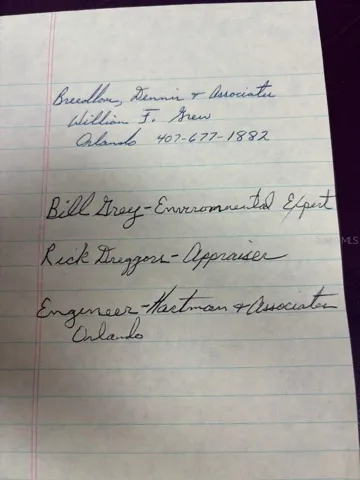 Breedlove, Dennis & Associates
William F. Grew
Orlando 407-677-1882
Bill Grey - Environmental Expert
Rick Dreggors - Appraiser
Engineer - Hartman & Associates
Orlando
MLS